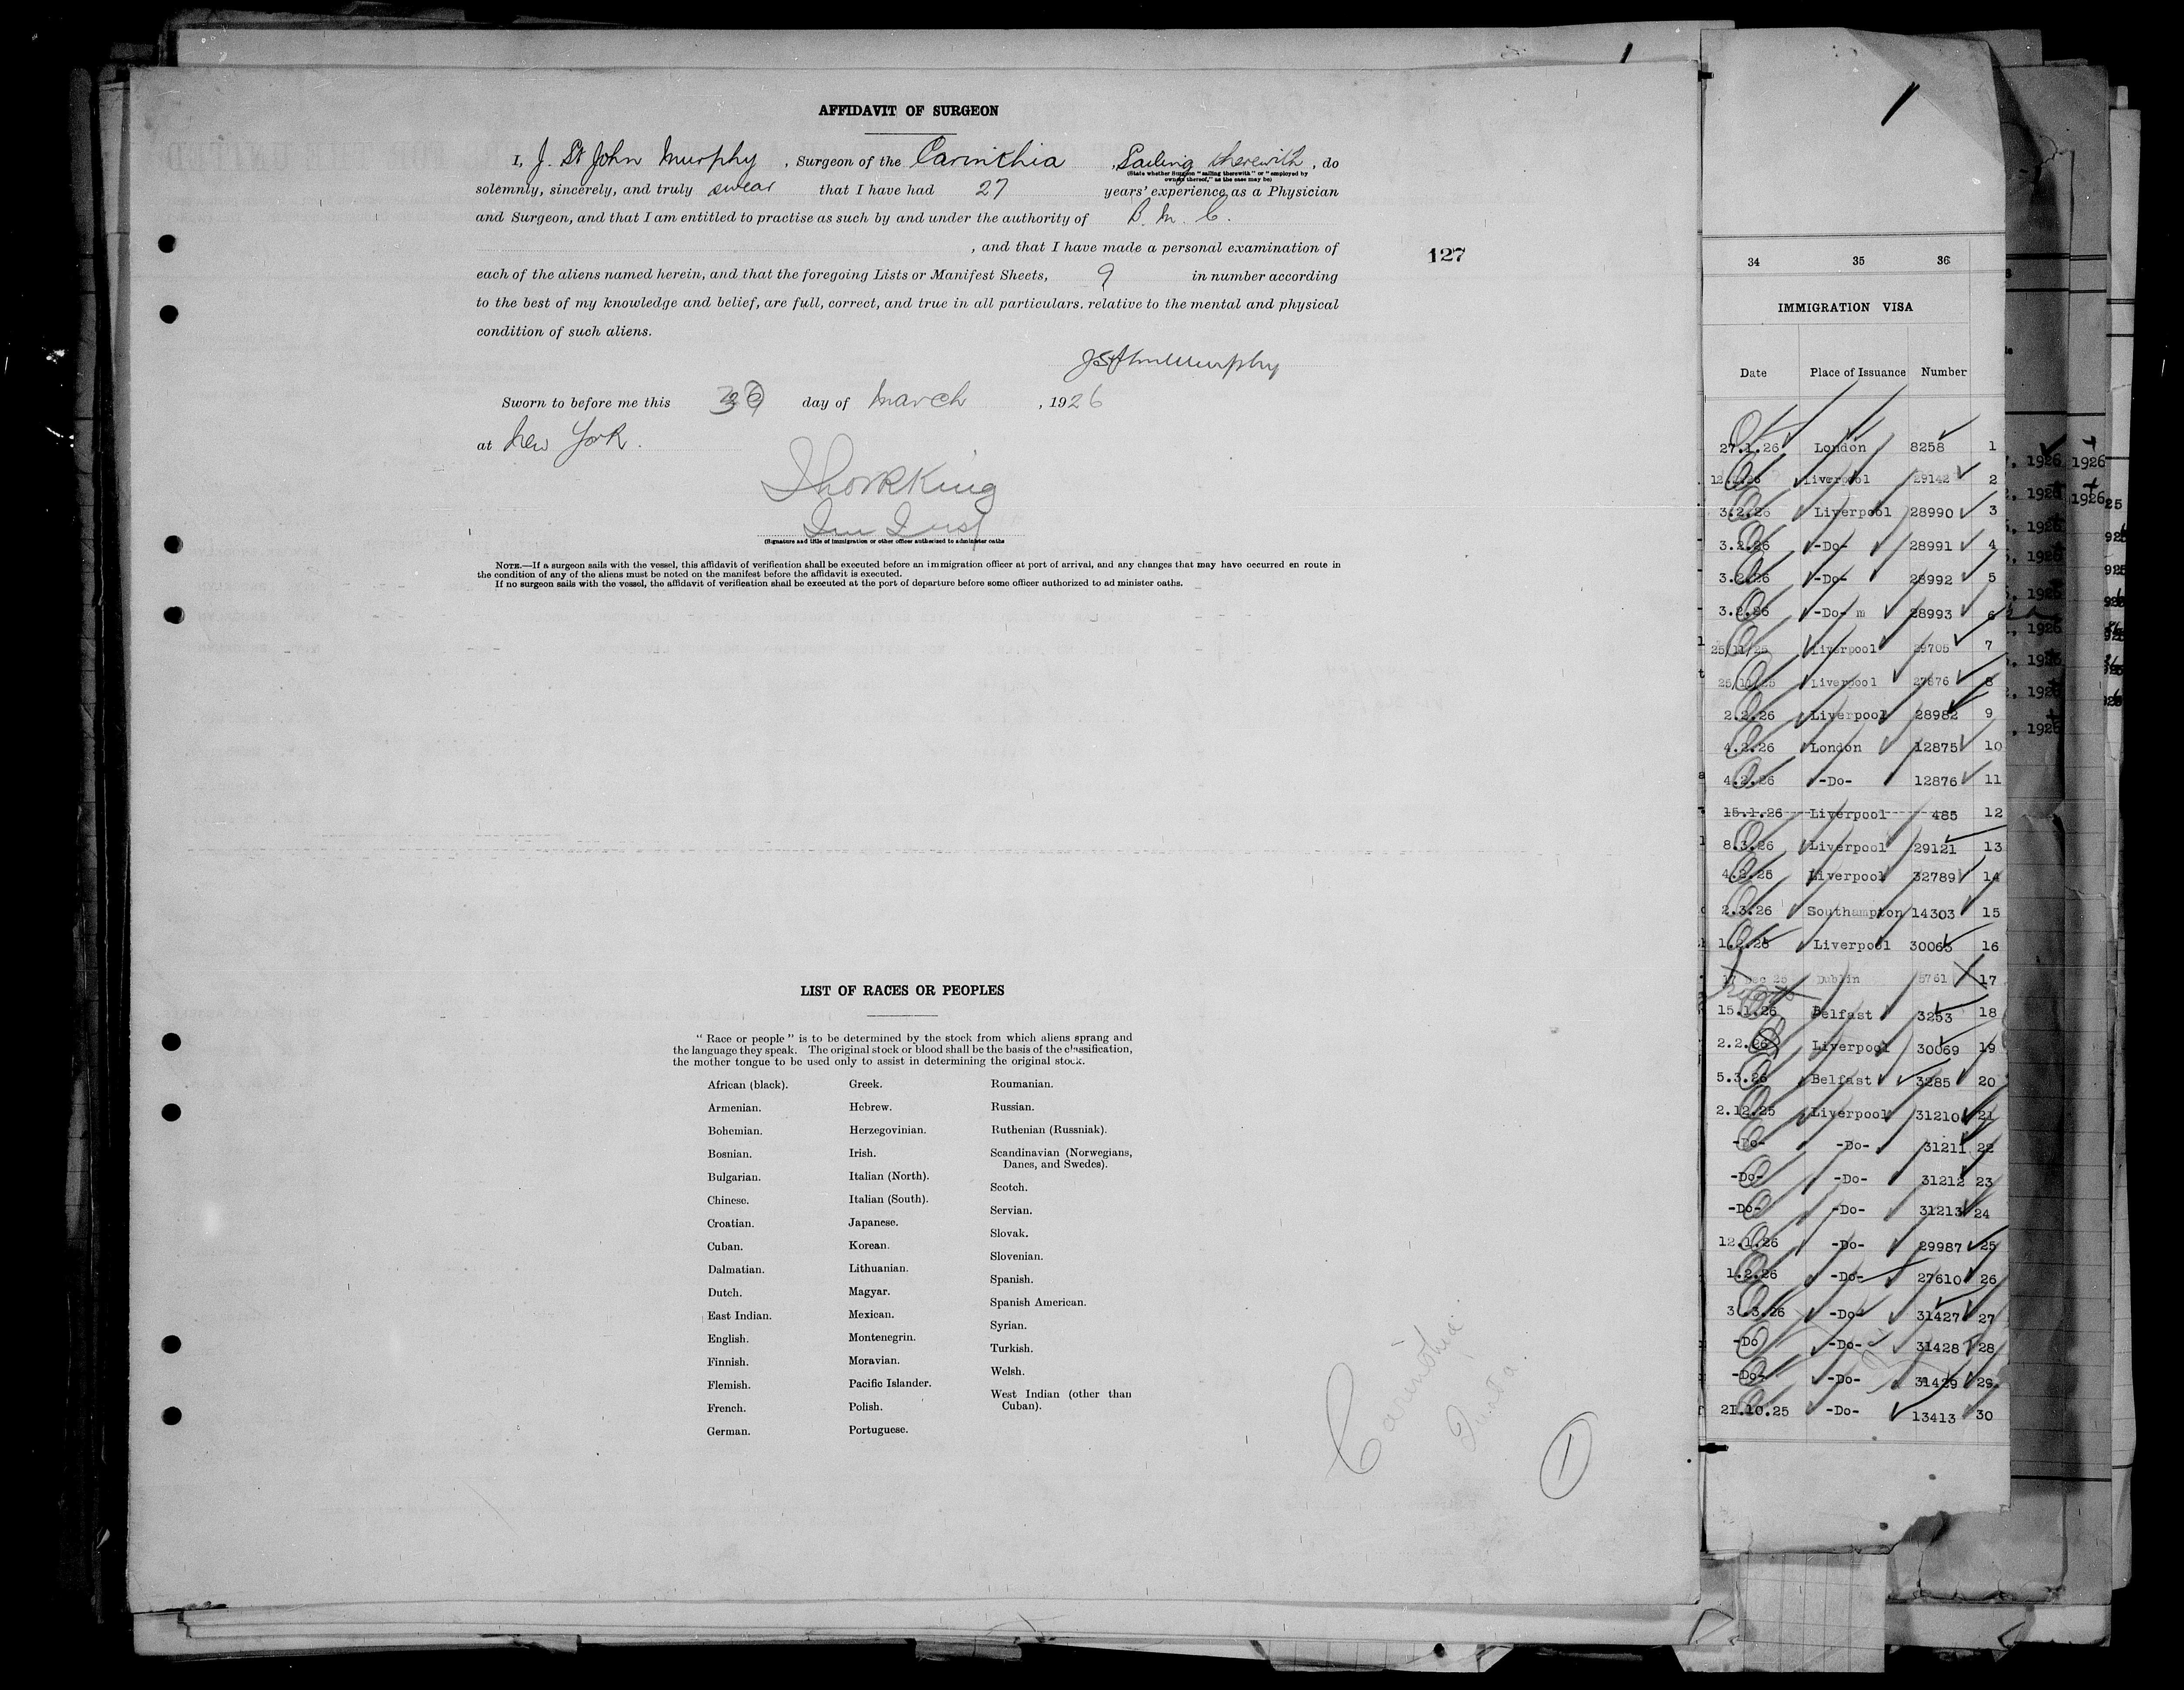 AFFIDAVIT OF SURGEON
I, J. St John Murphy, Surgeon of the Carinthia, Sailing therewith, do
(State whether Surgeon "sailing therewith" or "employed by
owners thereof," as the case may be)
solemnly, sincerely, and truly swear that I have had 27 years' experience as a Physician
and Surgeon, and that I am entitled to practise as such by and under the authority of B. M. C.
, and that I have made a personal examination of
each of the aliens named herein, and that the foregoing Lists or Manifest Sheets, 9 in number according
to the best of my knowledge and belief, are full, correct, and true in all particulars. relative to the mental and physical
condition of such aliens.
J St John Murphy
Sworn to before me this day of March, 1926
at New York.
(Signature and title of immigration or other officer authorized to administer oaths
NOTE.—If a surgeon sails with the vessel, this affidavit of verification shall be executed before an immigration officer at port of arrival, and any changes that may have occurred en route in
the condition of any of the aliens must be noted on the manifest before the affidavit is executed.
If no surgeon sails with the vessel, the affidavit of verification shall be executed at the port of departure before some officer authorized to ad minister oaths.
127
LIST OF RACES OR PEOPLES
"Race or people" is to be determined by the stock from which aliens sprang and
the language they speak. The original stock or blood shall be the basis of the classification,
the mother tongue to be used only to assist in determining the original stock.
African (black).
Armenian.
Bohemian.
Bosnian.
Bulgarian.
Chinese.
Croatian.
Cuban.
Dalmatian.
Dutch.
East Indian.
English.
Finnish.
Flemish.
French.
German.
Greek.
Hebrew.
Herzegovinian.
Irish.
Italian (North).
Italian (South).
Japanese.
Korean.
Lithuanian.
Magyar.
Mexican.
Montenegrin.
Moravian.
Pacific Islander.
Polish.
Portuguese.
Roumanian.
Russian.
Ruthenian (Russniak).
Scandinavian (Norwegians,
Danes, and Swedes).
Scotch.
Servian.
Slovak.
Slovenian.
Spanish.
Spanish American.
Syrian.
Turkish.
Welsh.
West Indian (other than
Cuban).
Carinthia
1
34 35 36
IMMIGRATION VISA
Date Place of Issuance Number
27.1.26 London 8258 1
Liverpool 29142 2
3.2.26 Liverpool 28990 3
3.2.26 -Do- 28991 4
3.2.26 -Do- 28992 5
3.2.26 -Do- m 28993 6
25/11/25 Liverpool 29705 7
25/11/25 Liverpool 27876 8
2.2.26 Liverpool 28982 9
4.2.26 London 12875 10
4.2.26 -Do- 12876 11
15.1.26 Liverpool 485 12
8.3.26 Liverpool 29121 13
4.2.26 Liverpool 32789 14
2.3.26 Southampton 14303 15
1.2.26 Liverpool 30063 16
17 Dec 25 Dublin 5761 17
15.1.26 Belfast 3253 18
2.2.26 Liverpool 30069 19
5.3.26 Belfast 3285 20
2.12.25 Liverpool 31210 21
-Do- -Do- 31211 22
-Do- -Do- 31212 23
-Do- -Do- 31213 24
12.1.26 -Do- 29987 25
1.2.26 -Do- 27610 26
3.3.26 -Do- 31427 27
-Do -Do- 31428 28
-Do- -Do- 31429 29
21.10.25 -Do- 13413 30